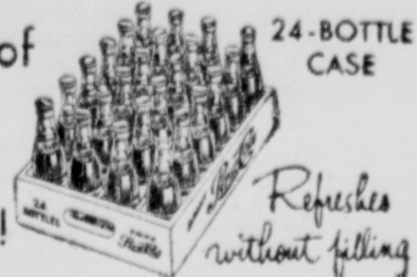 of
24-BOTTLE
CASE
24
BOTTLES
Refreshes
without filling
!